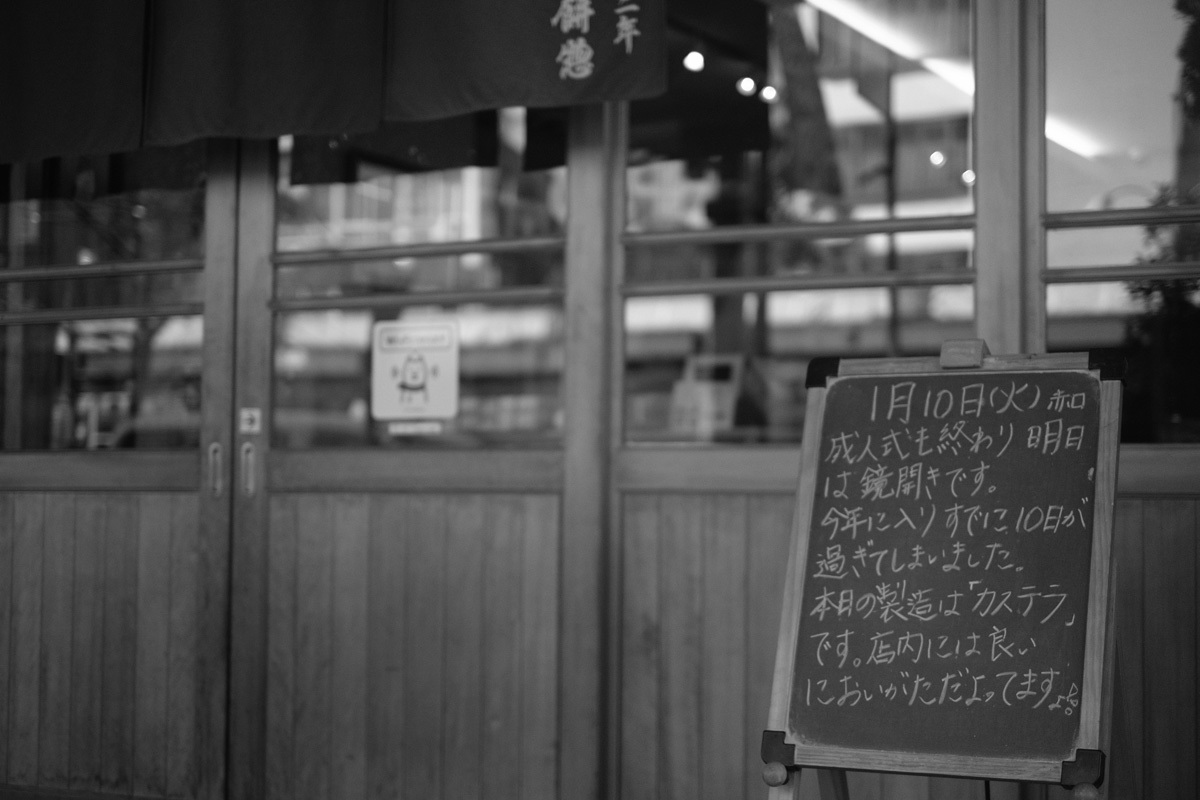 二年
餅惣
1月10日(火) 赤口
成人式も終わり 明日
は鏡開きです。
今年に入りすでに10日が
過ぎてしまいました。
本日の製造は「カステラ」
です。店内には良い
においがただよってます。